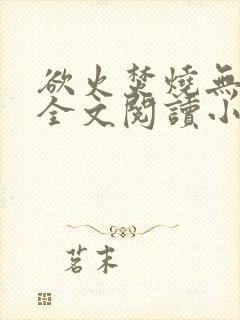 欲火焚燒無
全文閱讀小
茗末